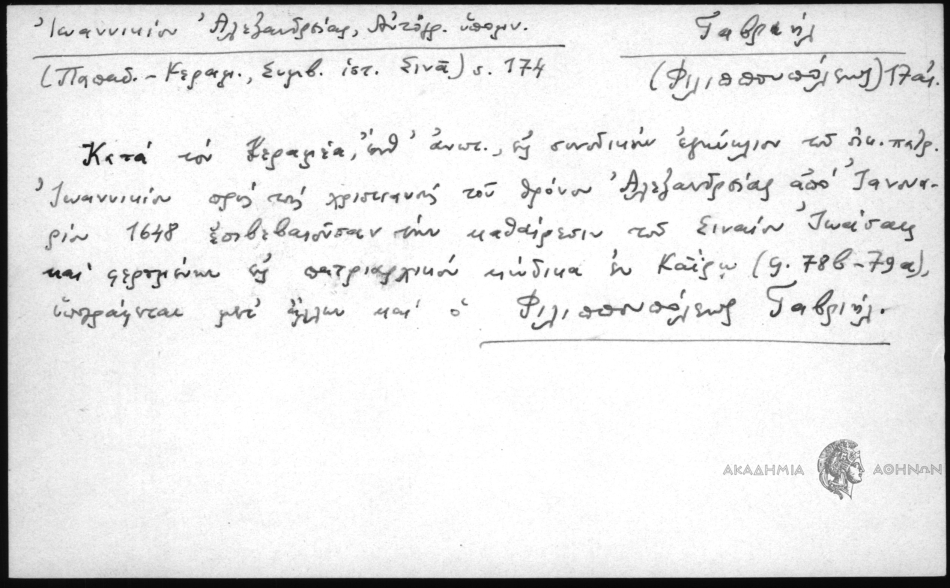 Ἰωαννικίου Ἀλεξανδρείας, Αὐτόγρ. ὑπομν.
(Παπαδ.-Κεραμ., Συμβ. ἱστ. Σινᾶ) s. 174
Γαβριήλ
(Φιλιππουπόλεως) 17 αἰ.
Κατά τόν Κεραμέα, ἔνθ' ἀνωτ., εἰς συνοδικήν ἐγκύκλιον τοῦ οἰκ. πατρ.
Ἰωαννικίου πρός τούς χριστιανούς τοῦ θρόνου Ἀλεξανδρείας ἀπό Ἰανουα-
ρίου 1648 ἐπιβεβαιοῦσαν τήν καθαίρεσιν τοῦ Σιναίου Ἰωάσαφ
καί φερομένην εἰς πατριαρχικόν κώδικα ἐν Καΐρῳ (φ. 78b-79a),
ὑπογράφεται μετ' ἄλλων καί ὁ Φιλιππουπόλεως Γαβριήλ.
ΑΚΑΔΗΜΙΑ ΑΘΗΝΩΝ